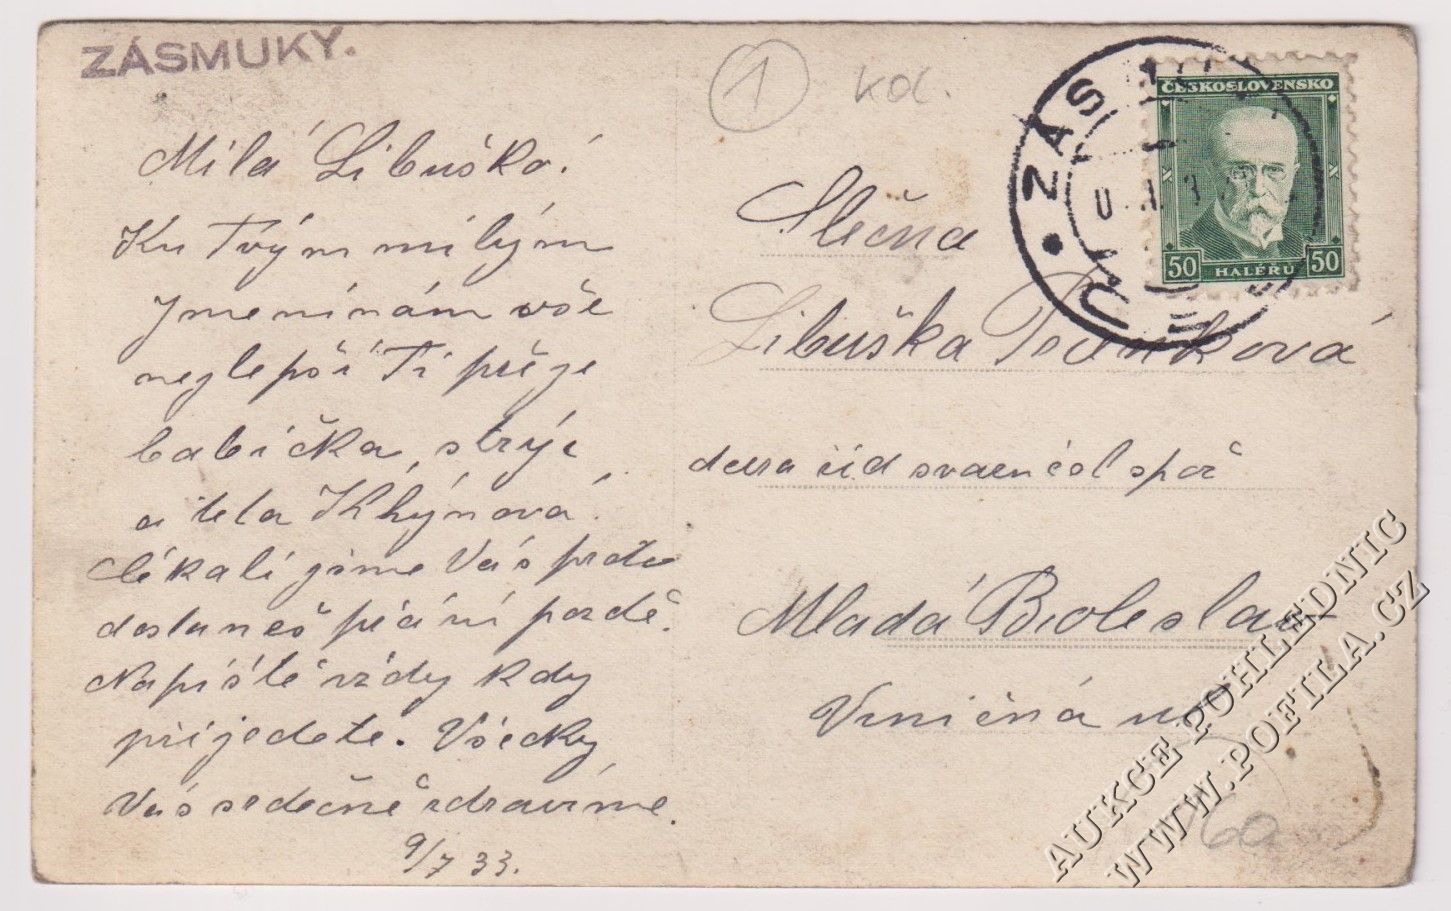 ZÁSMUKY.
Milá Libuško!
Ku Tvým milým
Jmenínám vše
nejlepší Ti přeje
babička, strýc
a teta Khýnová.
Čékali jsme Vás proto
dostaneš přání pozdě.
Napíště vždy kdy
přijedete. Všecky
Vás srdečně zdravíme.
9/7 33.
1
kol.
ČESKOSLOVENSKO
50 HALÉŘŮ 50
ZÁSMU
Slečna
Libuška
Mladá Boleslav
Viničná ul
AUKCE POHLEDNIC
WWW.POFILA.CZ